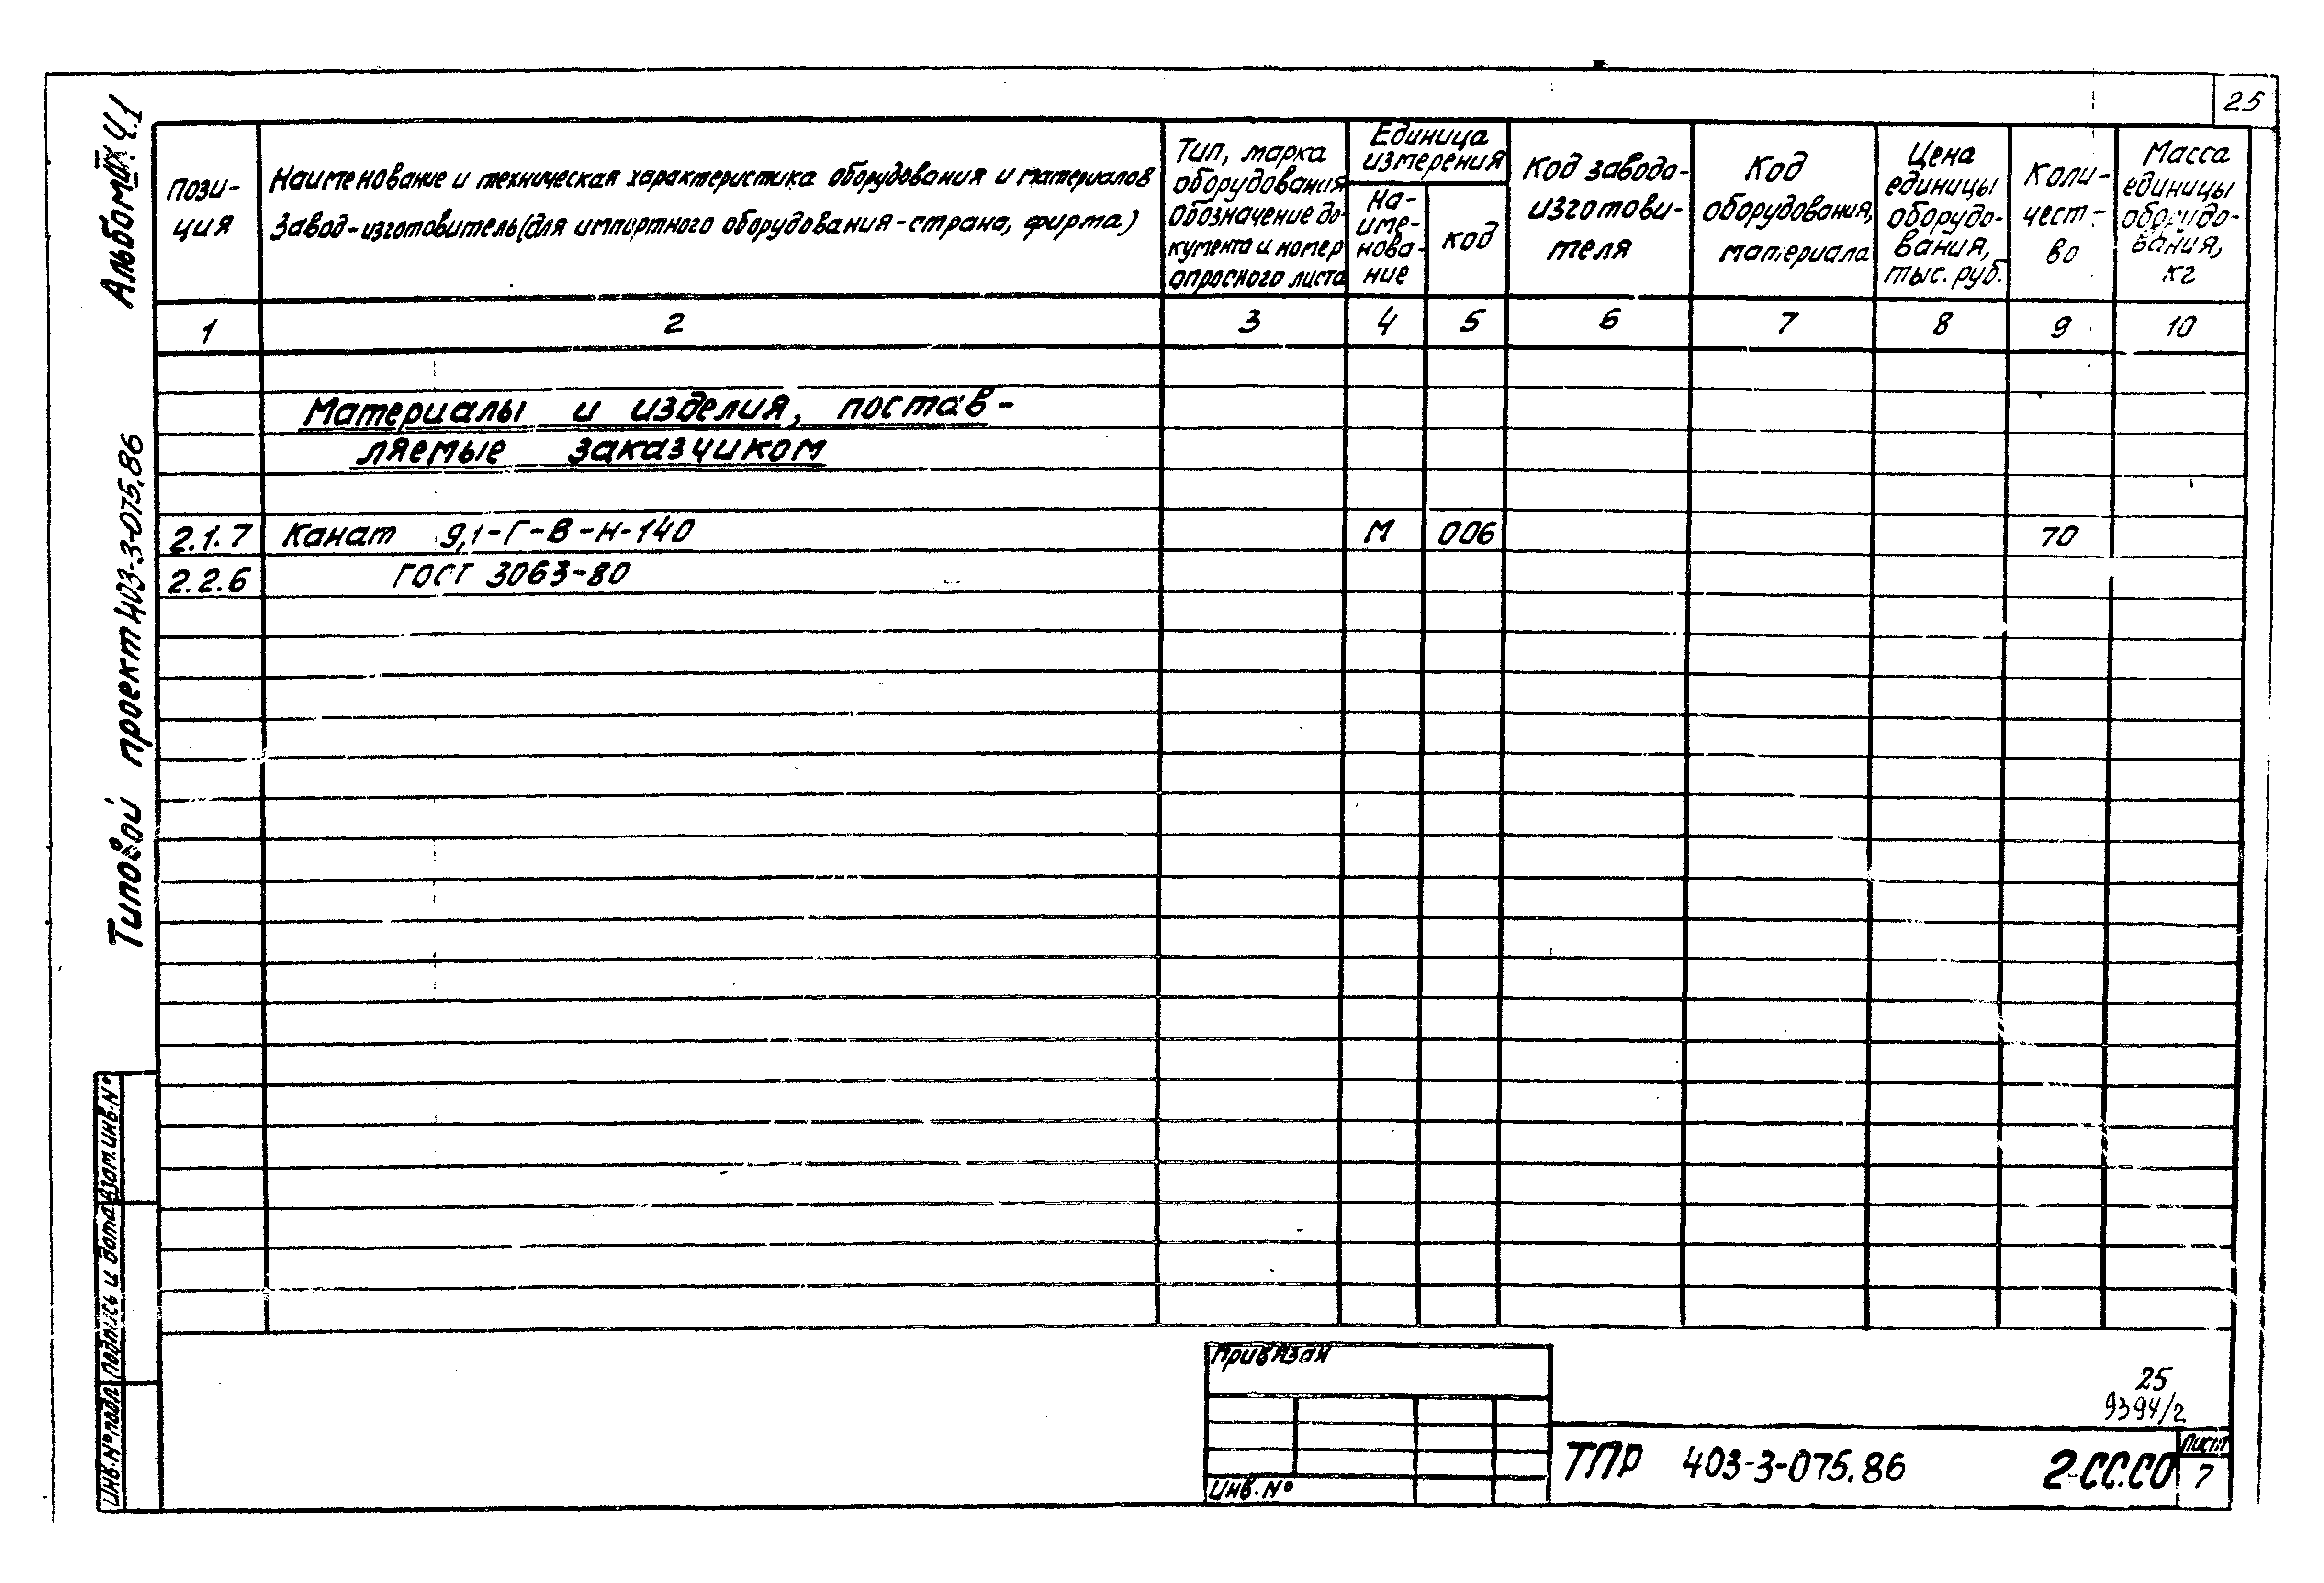 25
Альбом IX. Ч.1
Типовой проект 403-3-075.86
Пози-
ция
Наименование и техническая характеристика оборудования и материалов
Завод-изготовитель (для импортного оборудования-страна, фирма)
Тип, марка
оборудования
Обозначение до-
кумента и номер
опросного листа
Единица
измерения
На-
име-
нова-
ние
код
Код завода-
изготови-
теля
Код
оборудования,
материала
Цена
единицы
оборудо-
вания,
тыс. руб.
Коли-
чест-
во
Масса
единицы
оборудо-
вания,
кг
1 2 3 4 5 6 7 8 9 10
Материалы и изделия, постав-
ляемые заказчиком
2.1.7 Канат 9,1-Г-В-Н-140 М 006 70
2.2.6 ГОСТ 3063-80
Взам.инв.№
Подпись и дата
Инв.№подл.
Привязан
Инв.№
25
9394/2
ТПР 403-3-075.86 2-СС.СО
Лист
7